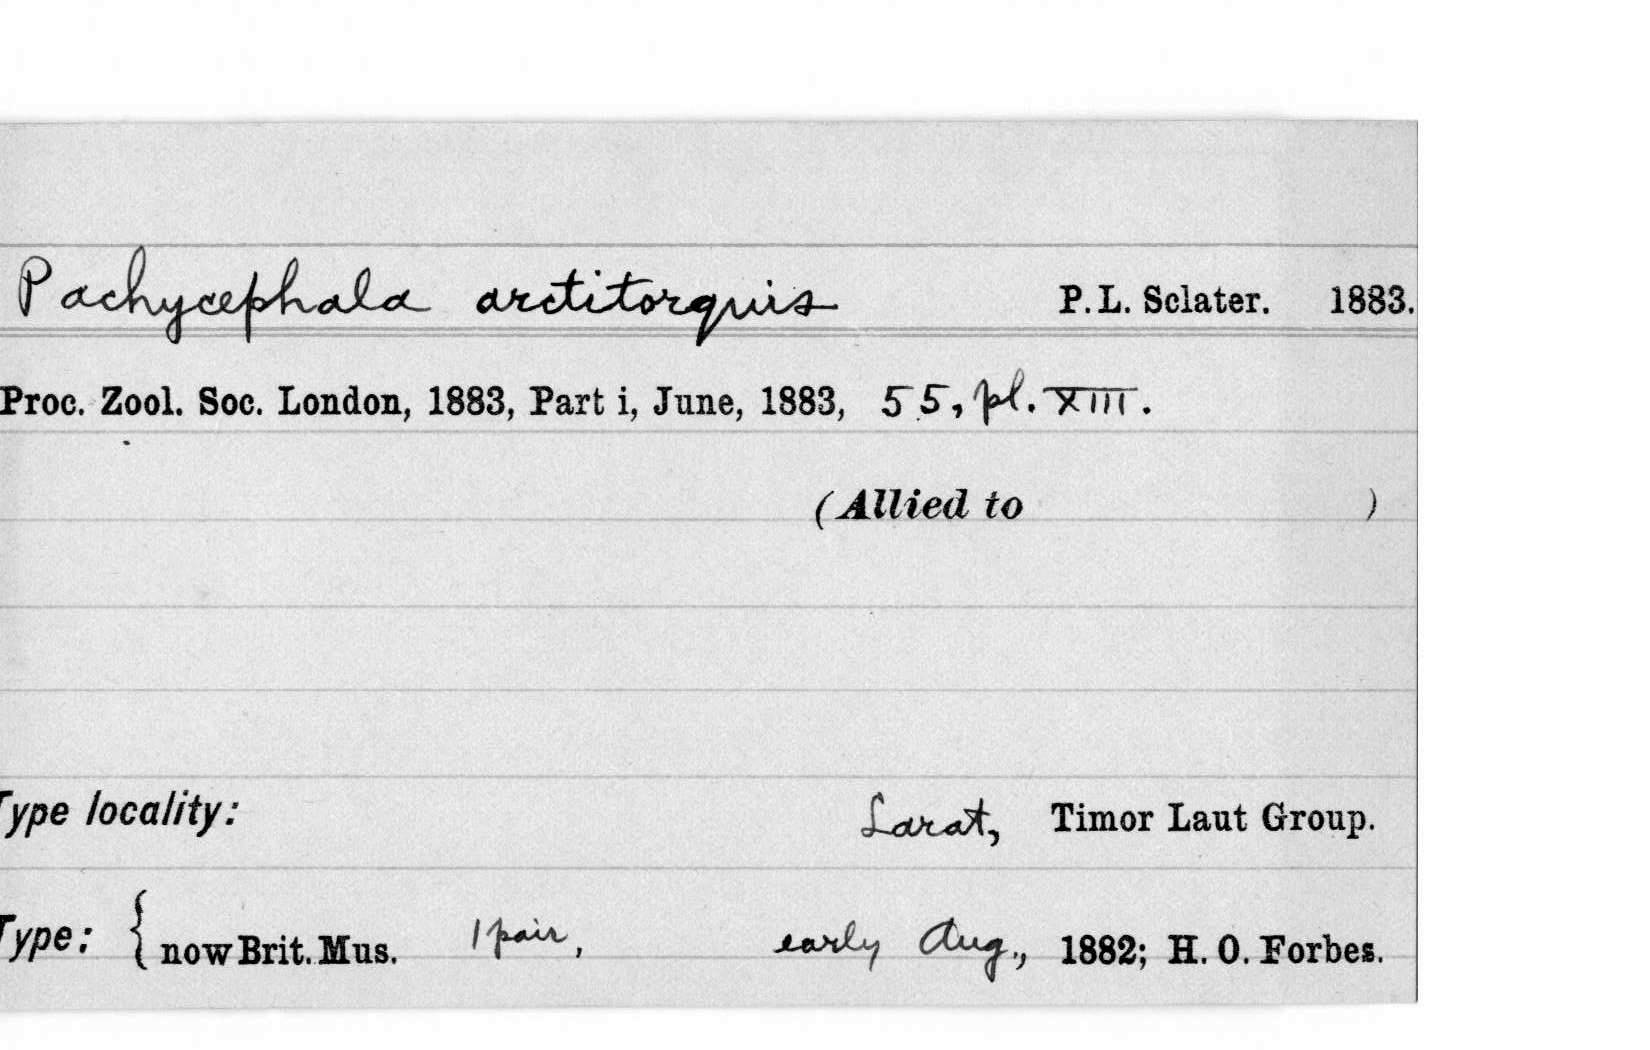 Pachycephala arctitorquis P. L. Sclater. 1883.
Proc. Zool. Soc. London, 1883, Part i, June, 1883, 55, pl. XIII.
(Allied to )
Type locality: Larat, Timor Laut Group.
Type: { now Brit. Mus. 1 pair, early Aug., 1882; H. O. Forbes.